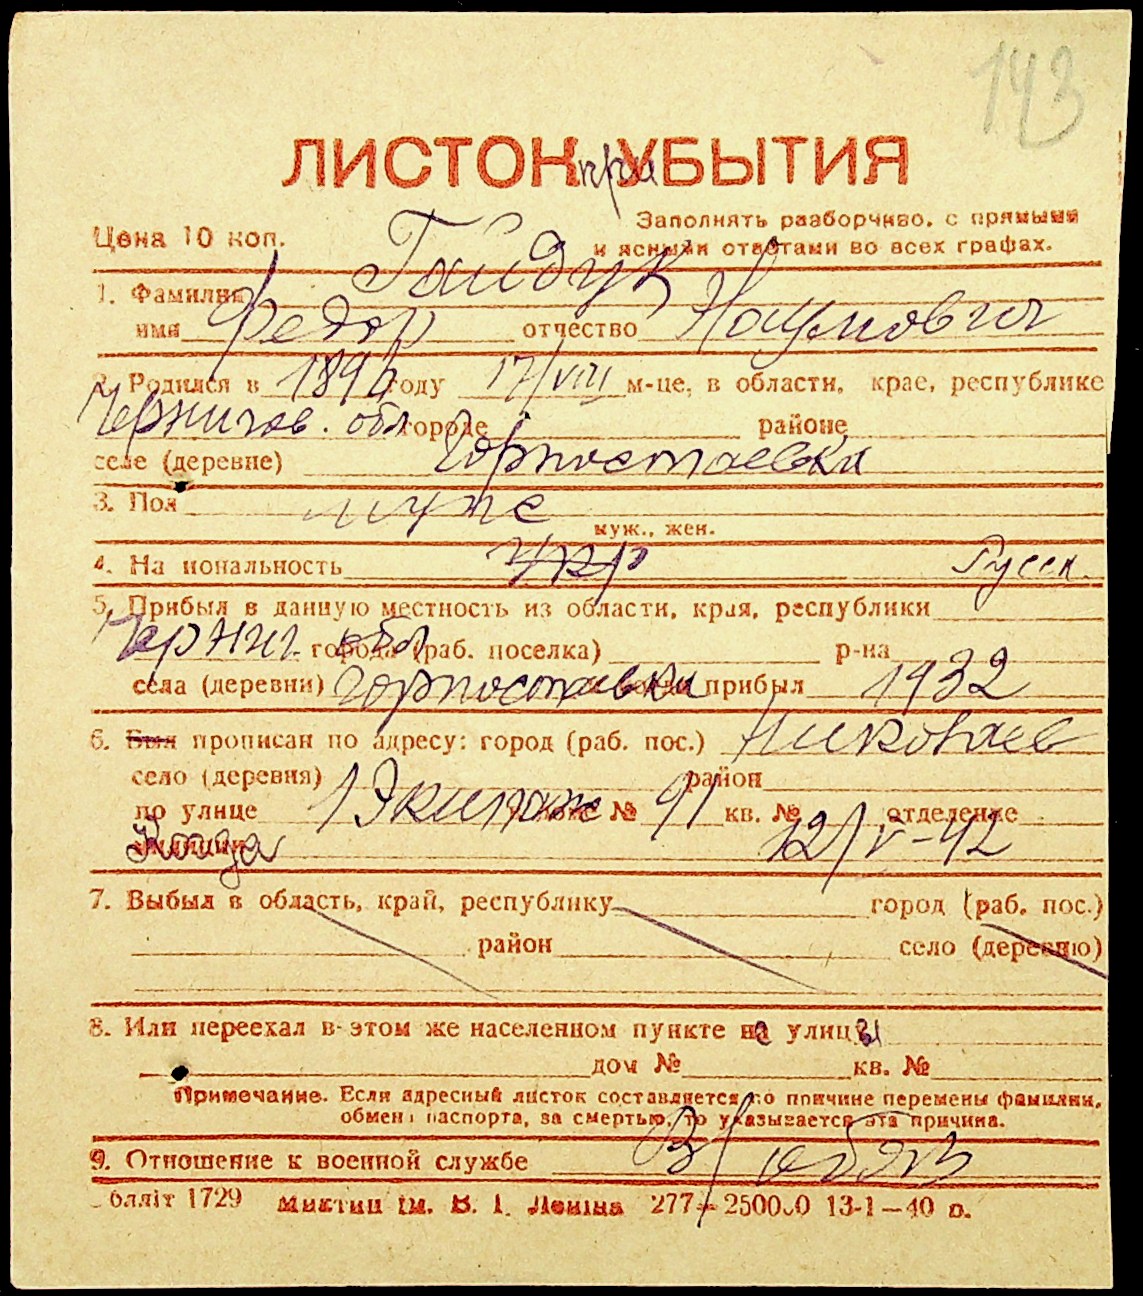 143
ЛИСТОК при УБЫТИЯ
Цена 10 коп. Заполнять разборчиво, с прямыми
и ясными ответами во всех графах.
1. Фамилия Гайдук
имя Федор отчество Наумович
2. Родился в 1894 году 17/VIII м-це, в области, крае, республике
Чернигов. обл городе районе
селе (деревне) Горностаевка
3. Пол муж
муж., жен.
4. На иональность Укр Русск.
5. Прибыл в данную местность из области, края, республики
Черниг. обл города (раб. поселка) р-на
села (деревни) Горностаевки прибыл 1932
6. Был прописан по адресу: город (раб. пос.) Николаев
село (деревня) район
по улице 1 Экипаж № 91 кв. № отделение
милиции Когда 12/V-42
7. Выбыл в область, край, республику город (раб. пос.)
район село (деревню)
8. Или переехал в этом же населенном пункте на улицы
дом № кв. №
Примечание. Если адресный листок составляется по причине перемены фамилии,
обмена паспорта, за смертью, то указывается эта причина.
9. Отношение к военной службе В/обяз
бліт 1729 Миктип ім. В. І. Леніна 277—250000 13-1—40 р.